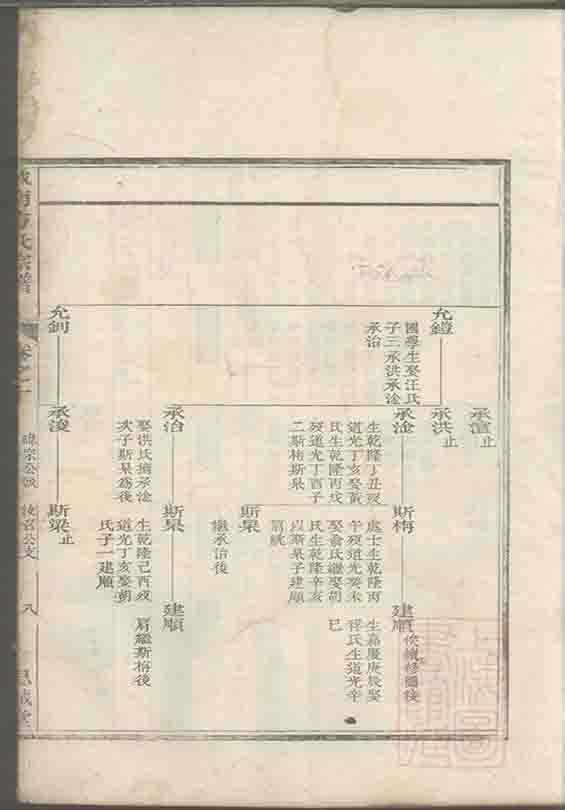 承澶止
允鐙
國學生娶汪氏
子三承洪承淦
承治
承洪止
承淦
生乾隆丁丑歿
道光丁亥娶黃
氏生乾隆丙戌
歿道光丁酉子
二斯梅斯杲
斯梅
處士生乾隆丙
午歿道光癸未
娶俞氏繼娶胡
氏生乾隆辛亥
以斯杲子建順
肩祧
建順
俟續修圖後
生嘉慶庚辰娶
氏生道光辛
巳
斯杲
繼承治後
承治
娶洪氏擒承淦
次子斯杲爲後
斯杲
生乾隆己酉歿
道光丁亥娶胡
氏子一建順
建順
肩繼斯梅後
允釗
承浚
斯梁止
城南方氏宗譜
卷之二
緣宗公
公支
八